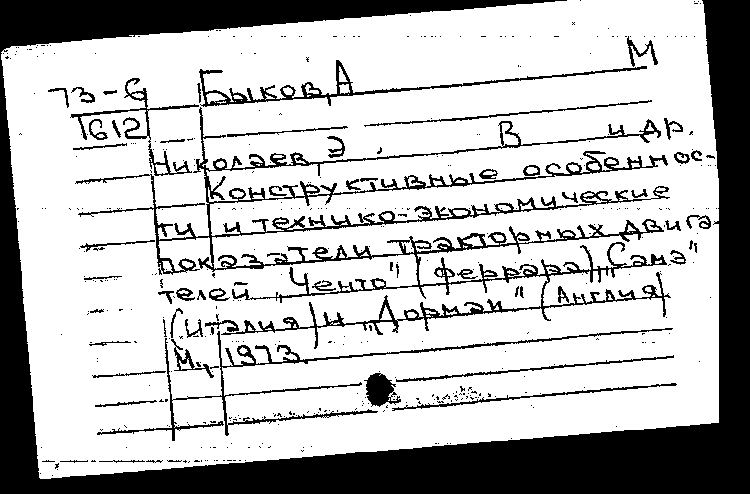 73-6 Быков, А М
1612
Николаев, Э. В и др.
Конструктивные особеннос-
ти и технико-экономические
показатели тракторных двига-
телей „Ченто" (Феррара), „Самэ"
(Италия) и „Дорман" (Англия).
М., 1973.